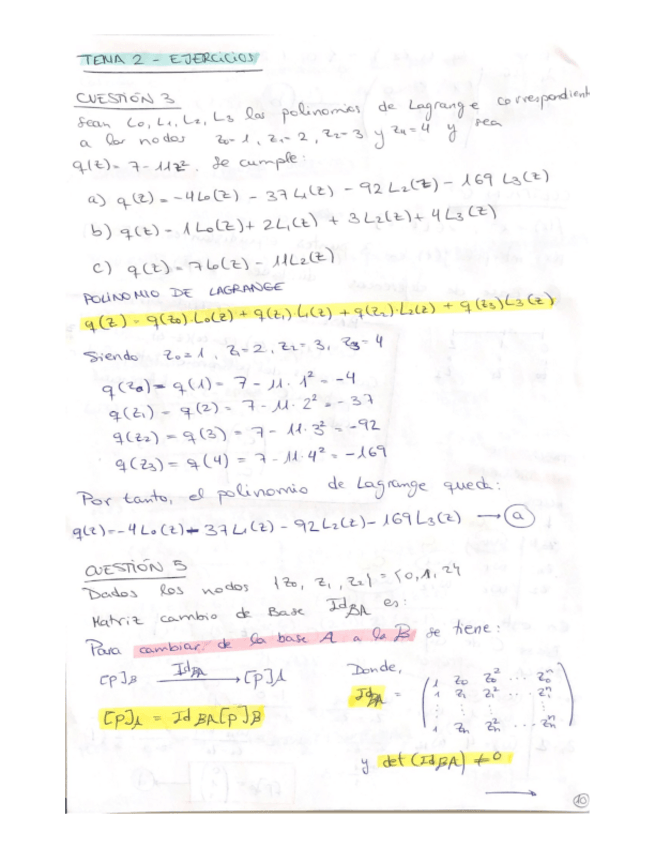 TEMA 2 - EJERCICIOS
CUESTIÓN 3
Sean L0, L1, L2, L3 los polinomios de Lagrange correspondient
a los nodos z0=1, z1=2, z2=3 y z4=4 y sea
q(z)=7-11z². Se cumple:
a) q(z)=-4L0(z) - 37L1(z) - 92L2(z) - 169 L3(z)
b) q(z) - 1L0(z)+ 2L1(z) + 3L2(z)+ 4L3(z)
c) q(z)=7L0(z) - 11L2(z)
POLINOMIO DE LAGRANGE
q(z)=q(z0)·L0(z)+q(z1)·L1(z)+q(z2)·L2(z)+q(z3)L3(z)
Siendo z0=1, z1=2, z2=3, z3=4
q(z0)= q(1)= 7 - 11·1² = -4
q(z1)= q(2)= 7 - 11·2² = -37
q(z2)= q(3)= 7 - 11·3² = -92
q(z3)= q(4)= 7 - 11·4² = -169
Por tanto, el polinomio de Lagrange queda:
q(z)=-4L0(z)-37L1(z) - 92L2(z)-169L3(z) → a
CUESTIÓN 5
Dados los nodos {z0, z1, z2}={0,1,2}
Matriz cambio de Base IdBA es:
Para cambiar de la base A a la B se tiene:
[p]B IdBA → [p]A
[p]A = IdBA[p]B
Donde,
IdBA = ( 1 z0 z0² ... z0ⁿ
1 z1 z1² ... z1ⁿ
⋮ ⋮ ⋮ ⋮
1 zn zn² ... znⁿ )
y det(IdBA) ≠0
→
10